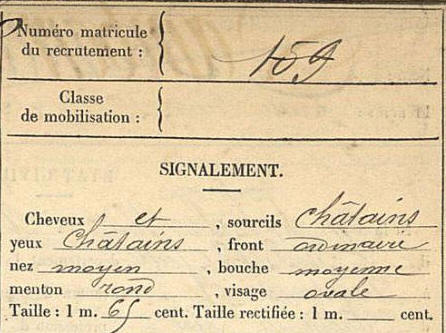 Numéro matricule
du recrutement : 159
Classe
de mobilisation :
SIGNALEMENT.
Cheveux et , sourcils châtains
yeux châtains , front ordinaire
nez moyen , bouche moyenne
menton rond , visage ovale
Taille : 1 m. 65 cent. Taille rectifiée : 1 m. cent.